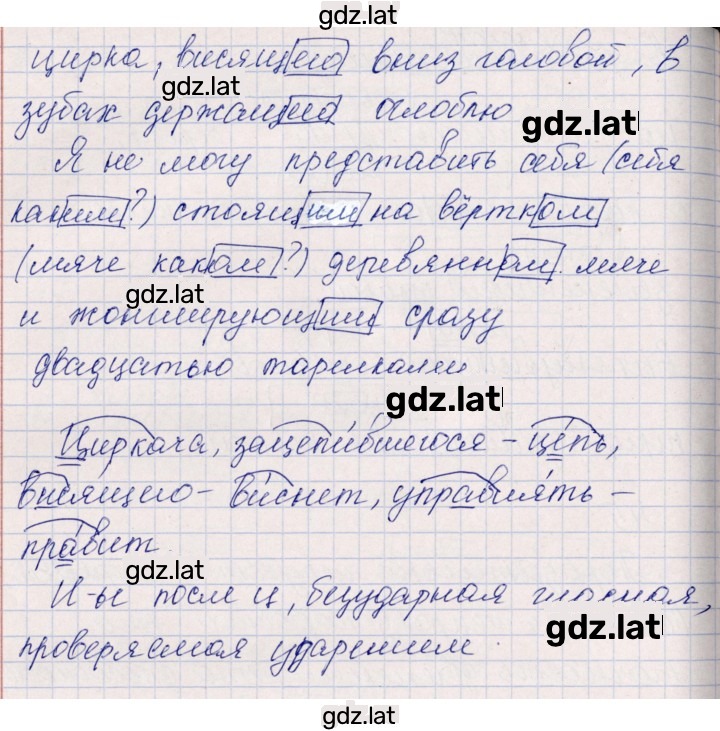 gdz.latl
цирка, висящего вниз головой, в
gdz.latl
зубах держащего оглоблю
gdz.latl
Я не могу представить себя (себя
каким?) стоящим на вёртком
(мяче каком?) деревянном мяче
gdz.latl
и жонглирующим сразу
двадцатью тарелками
gdz.latl
Циркача, зацепившегося – цепь,
висящего – виснет, управлять –
правит
gdz.latl
И-ы после ц, безударная гласная,
gdz.latl
проверяемая ударением
gdz.latl